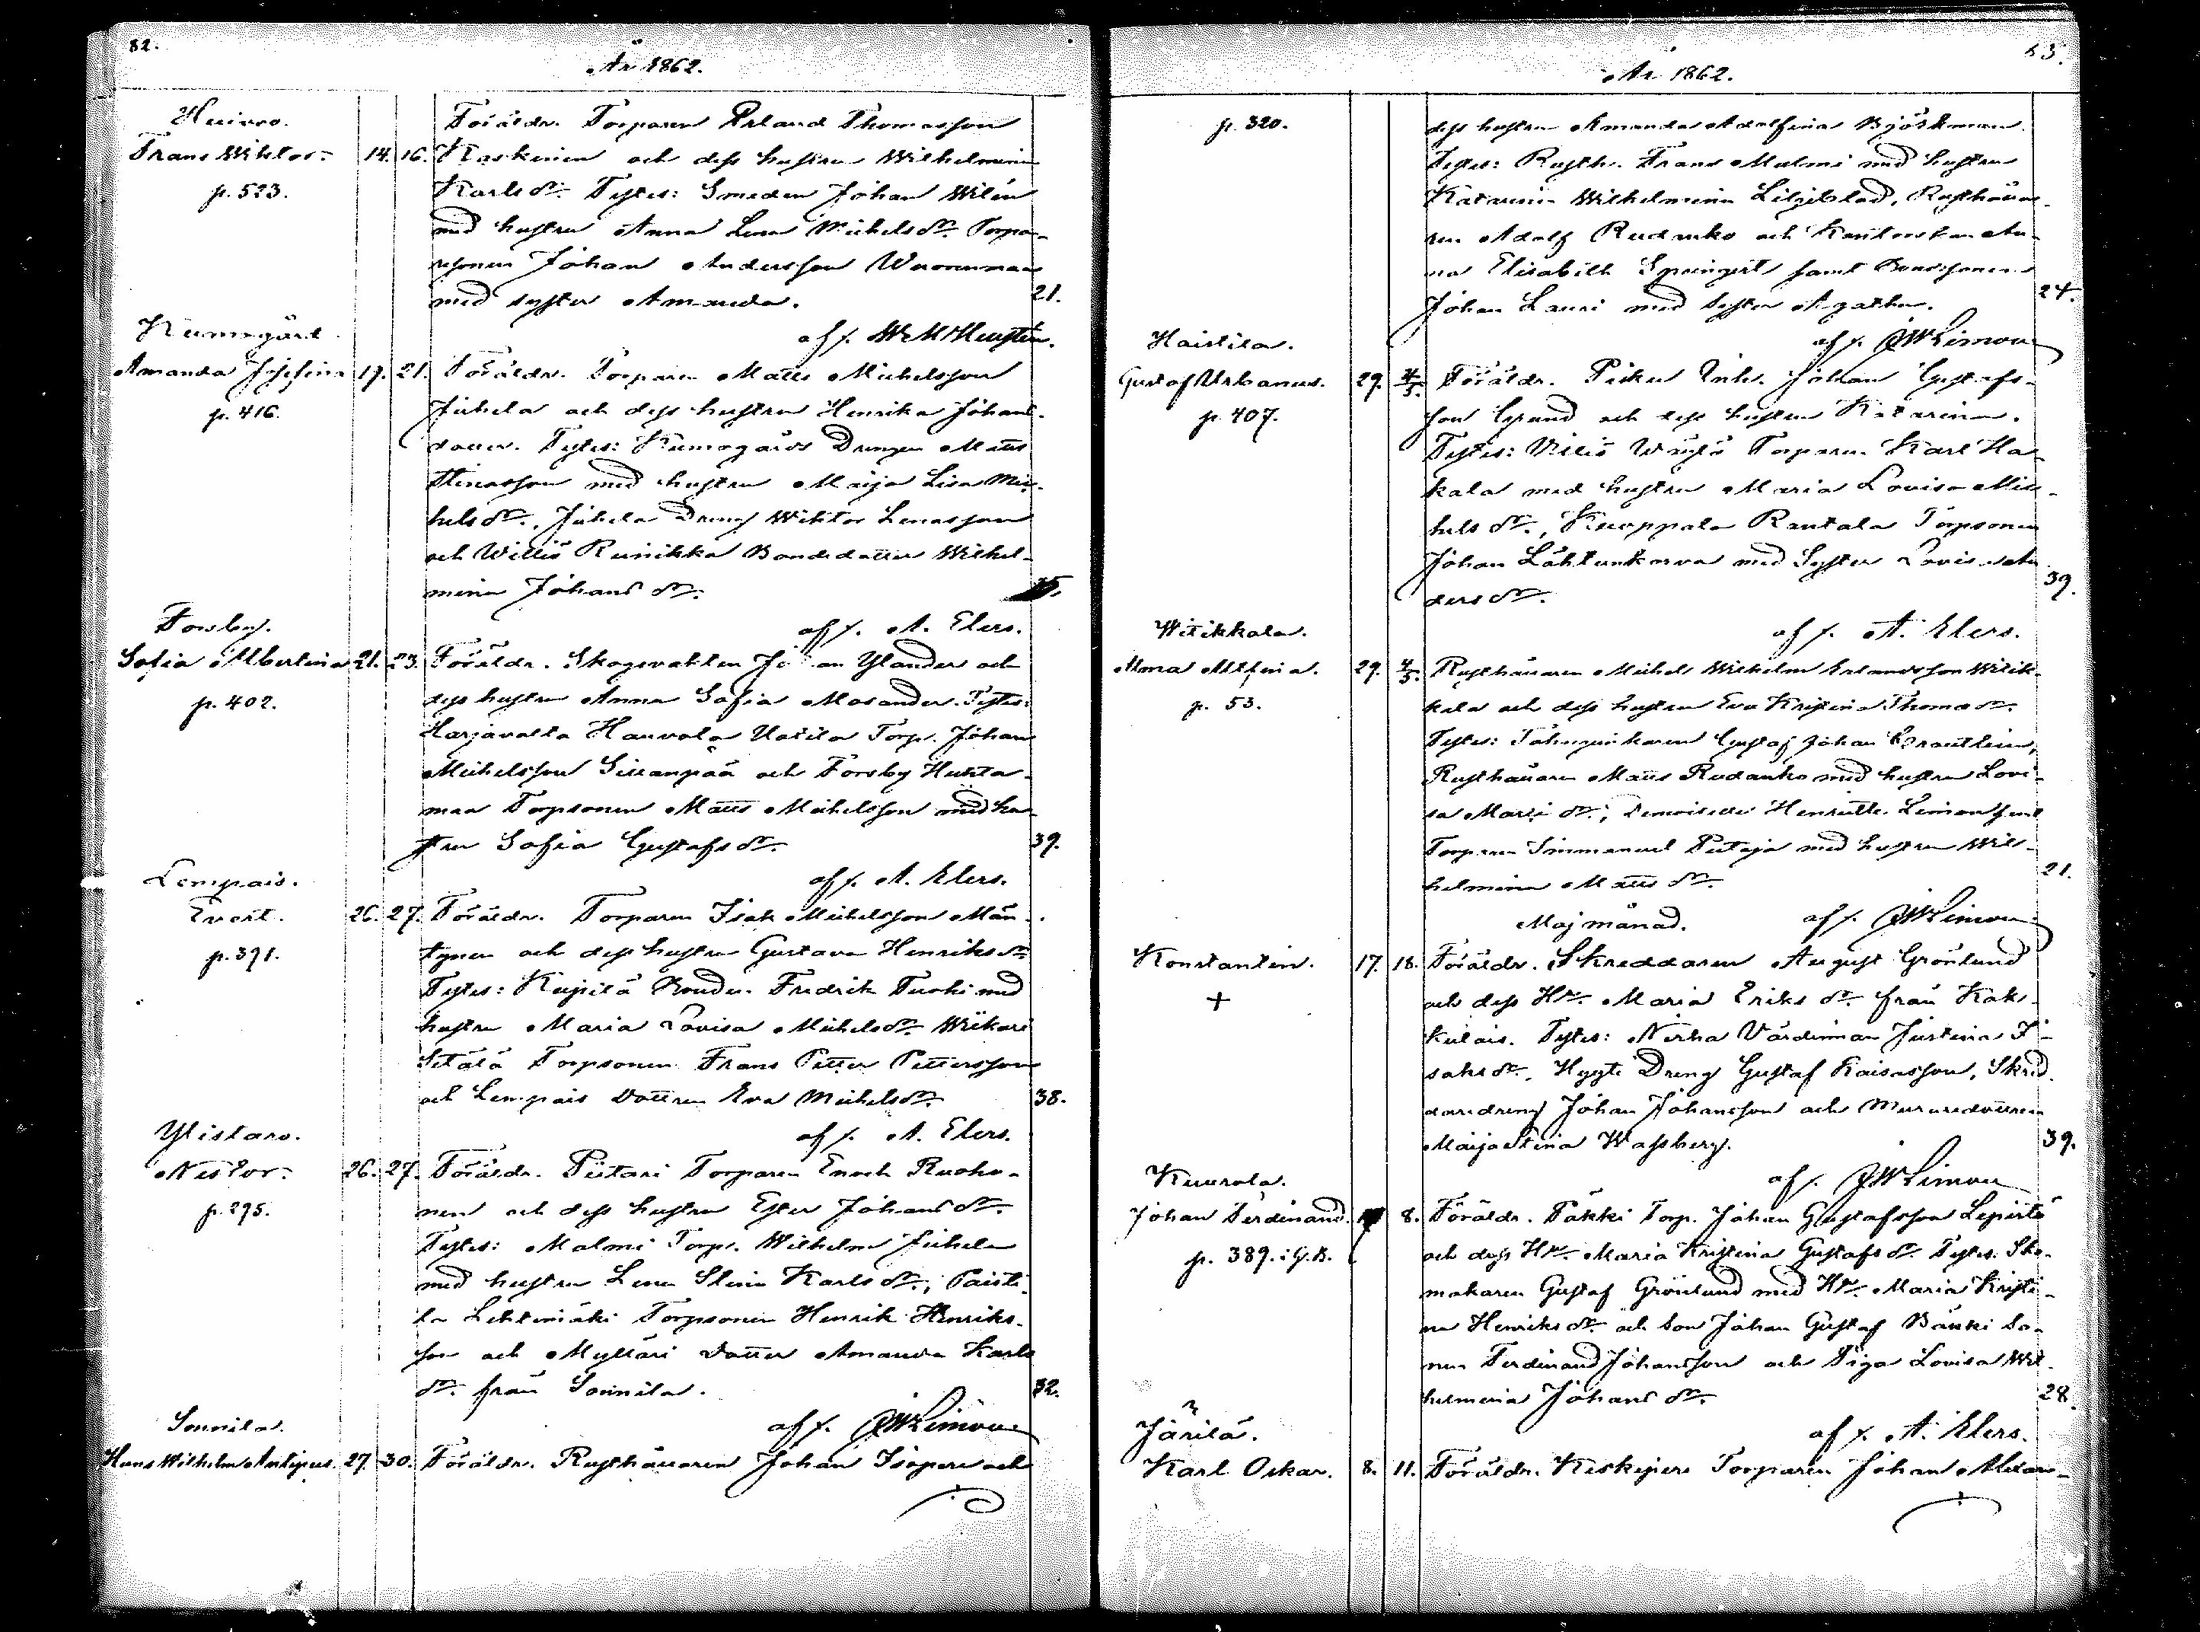 82.
År 1862.
Huivro.
Frans Wiktor. 14. 16.
p. 523.
Föräldr. Torparen Erland Thomasson
Koskinen och dess hustru Wilhelmina
Karls dr. Testes: Smeden Johan Wilén
med hustru Anna Lena Michels dr. Torpa-
resonen Johan Andersson Wuorenmaa
med syster Amanda. 21.
af f.
Kumogård.
Amanda Josefina 19. 21.
p. 416.
Föräldr. Torparen Matts Michelsson
Juhela och dess hustru Henrika Johans-
dotter. Testes: Kumogårds Drengen Matts
Stinasson med hustru Maija Lisa Mic-
hels dr., Juhela Dreng Wiktor Lenasson
och Willio Reinikka Bondedotter Wilhel-
mina Johans dr.
af f. A. Elers.
Forsby.
Sofia Albertina 21. 23.
p. 402.
Föräldr. Skogsvakten Johan Ylander och
dess hustru Anna Sofia Mosander. Testes:
Harjavalta Hauvola Uotila Torp. Johan
Michelsson Sillanpää och Forsby Huhta-
maa Torpsonen Matts Michelsson med hu-
stru Sofia Gustafs dr. 39.
af f. A. Elers.
Lempais.
Evert. 26. 27.
p. 391.
Föräldr. Torparen Isak Michelsson Män-
tynen och dess hustru Gustava Henriks dr.
Testes: Kupilä Bonden Fredrik Tuoki med
hustru Maria Lovisa Michels dr. Wiikari
Sitälä Torpsonen Frans Petter Pettersson
och Lempais Dottren Eva Michels dr. 38.
af f. A. Elers.
Ylistaro.
Nestor. 26. 27.
p. 295.
Föräldr. Piitari Torparen Enoch Ruoho-
nen och dess hustru Ester Johans dr.
Testes: Malmi Torp. Wilhelm Juhela
med hustru Lena Stina Karls dr., Paisti-
la Lehtimäki Torpsonen Henrik Henriks-
son och Mylläri Dotter Amanda Karls
dr. från Sonnila. 32.
af f. JWLimon
Sonnila.
Hans Wilhelm Antipus. 27. 30.
Föräldr. Rusthållaren Johan Isopere och

83.
År 1862.
p. 320.
dess hustru Amanda Adolfina Björkman.
Testes: Rusth. Frans Malmi med hustru
Katarina Wilhelmina Liljeblad, Rusthålla-
ren Adolf Rudanko och Kantorskan An-
na Elisabeth Springert samt Bondsonen
Johan Lauri med syster Agatha. 24.
af f. JWLimon
Haistila.
Gustaf Urbanus. 29. 4/5.
p. 407.
Föräldr. Pisku Inh. Johan Gustafs-
son Grund och dess hustru Katarina.
Testes: Vilio Wäylä Torparen Karl Ha-
kala med hustru Maria Lovisa Mic-
hels dr., Kuoppala Rantala Torpsonen
Johan Lähteenkorva med Syster Lovisa An-
ders dr. 39.
af f. A. Elers.
Witikkala.
Alma Alfina. 29. 4/5.
p. 53.
Rusthållaren Michel Wilhelm Erlandsson Witik-
kala och dess hustru Eva Kristina Thomas dr.
Testes: Gustaf Johan
Rusthållaren Matts Rudanko med hustru Lovi-
sa Matts dr., Demoiselle Henriette Limon samt
Torparen Immanuel Pietaja med hustru Wil-
helmina Matts dr. 21.
Maj månad. af f. JWLimon
Konstantin. 17. 18.
+
Föräldr. Skreddaren August Grönlund
och dess Hru. Maria Eriks dr. från Kak-
kulais. Testes: Nirha Värdinnan Justina I-
saks dr., Hyyti Dreng Gustaf Kaisasson, Skred-
daredreng Johan Johansson och Muraredottren
Maija Stina Wassberg. 39.
af f. JWLimon
Kuurola.
Johan Ferdinand. 8.
p. 389. i G.B.
Föräldr. Pakki Torp. Johan Gustafsson Lepistö
och dess Hru. Maria Kristina Gustafs dr. Testes: Sko-
makaren Gustaf Grönlund med Hru. Maria Kristi-
na Henriks dr. och Son Johan Gustaf Bänki So-
nen Ferdinand Johansson och Piga Lovisa Wil-
helmina Johans dr. 28.
af f. A. Elers.
Järilä.
Karl Oskar. 8. 11.
Föräldr. Keskipere Torparen Johan Alexan-